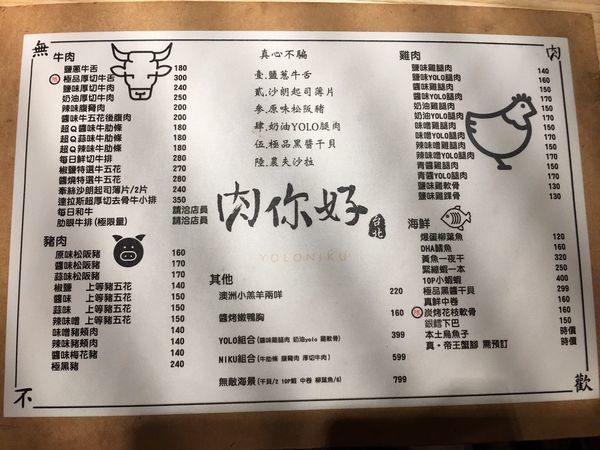 無
肉
不
歡
牛肉
鹽蔥牛舌 180
極品厚切牛舌 300
鹽味厚切牛肉 240
奶油厚切牛肉 250
辣味腹胸肉 200
醬味牛五花後腹肉 200
超Q醬味牛肋條 180
超Q蒜味牛肋條 180
超Q辣味牛肋條 180
每日鮮切牛排 280
椒鹽特選牛五花 240
醬燒特選牛五花 240
牽絲沙朗起司薄片/2片 240
達拉斯超厚切去骨牛小排 350
每日和牛 請洽店員
肋眼牛排(極限量) 請洽店員
豬肉
原味松阪豬 160
辣味松阪豬 170
蒜味松阪豬 170
椒鹽 上等豬五花 140
醬味 上等豬五花 150
蒜味 上等豬五花 150
辣味噌 上等豬五花 150
味噌豬頰肉 140
辣味豬頰肉 140
醬味梅花豬 140
極黑豬 240
真心不騙
壹.鹽蔥牛舌
貳.沙朗起司薄片
參.原味松阪豬
肆.奶油YOLO腿肉
伍.極品黑醬干貝
陸.農夫沙拉
肉你好
台北
YOLONIKU
其他
澳洲小羔羊兩咩 220
醬烤嫩鴨胸 160
YOLO組合(鹽味雞腿肉 奶油yolo 雞軟骨) 399
NIKU組合(牛肋條 腹胸肉 厚切牛肉) 599
無敵海景(干貝/2 10P蝦 中卷 柳葉魚/6) 799
雞肉
鹽味雞腿肉 140
鹽味YOLO腿肉 160
醬味雞腿肉
醬味YOLO腿肉
奶油雞腿肉
奶油YOLO腿肉
味噌雞腿肉
味噌YOLO腿肉
辣味噌雞腿肉
青醬雞腿肉
青醬YOLO腿肉
鹽味雞軟骨 160
鹽味雞踝骨 130
海鮮
爆蛋柳葉魚 120
DHA鯖魚 160
黃魚一夜干 320
緊繃蝦一本 150
10P小蝦蝦 150
極品黑醬干貝 299
真鮮中卷 150
炭烤花枝軟骨 160
銀鱈下巴 150
本土烏魚子 時價
真・帝王蟹腳 需預訂 時價